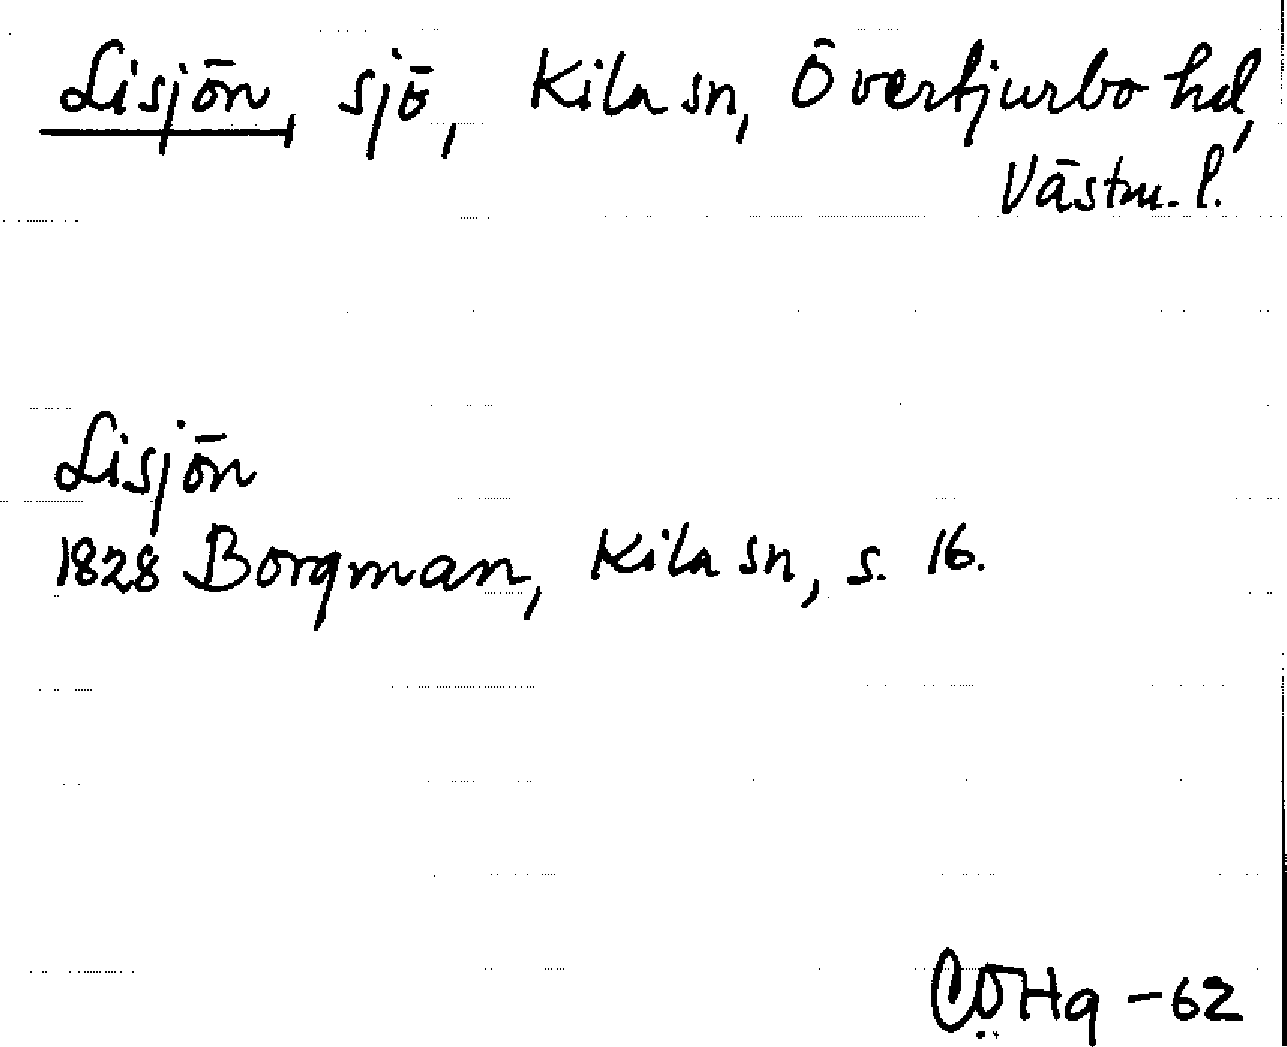 Lisjön, sjö, Kila sn, Övertjurbo hd,
Västm. l.
Lisjön
1828 Borgman, Kila sn, s. 16.
CÖHg -62